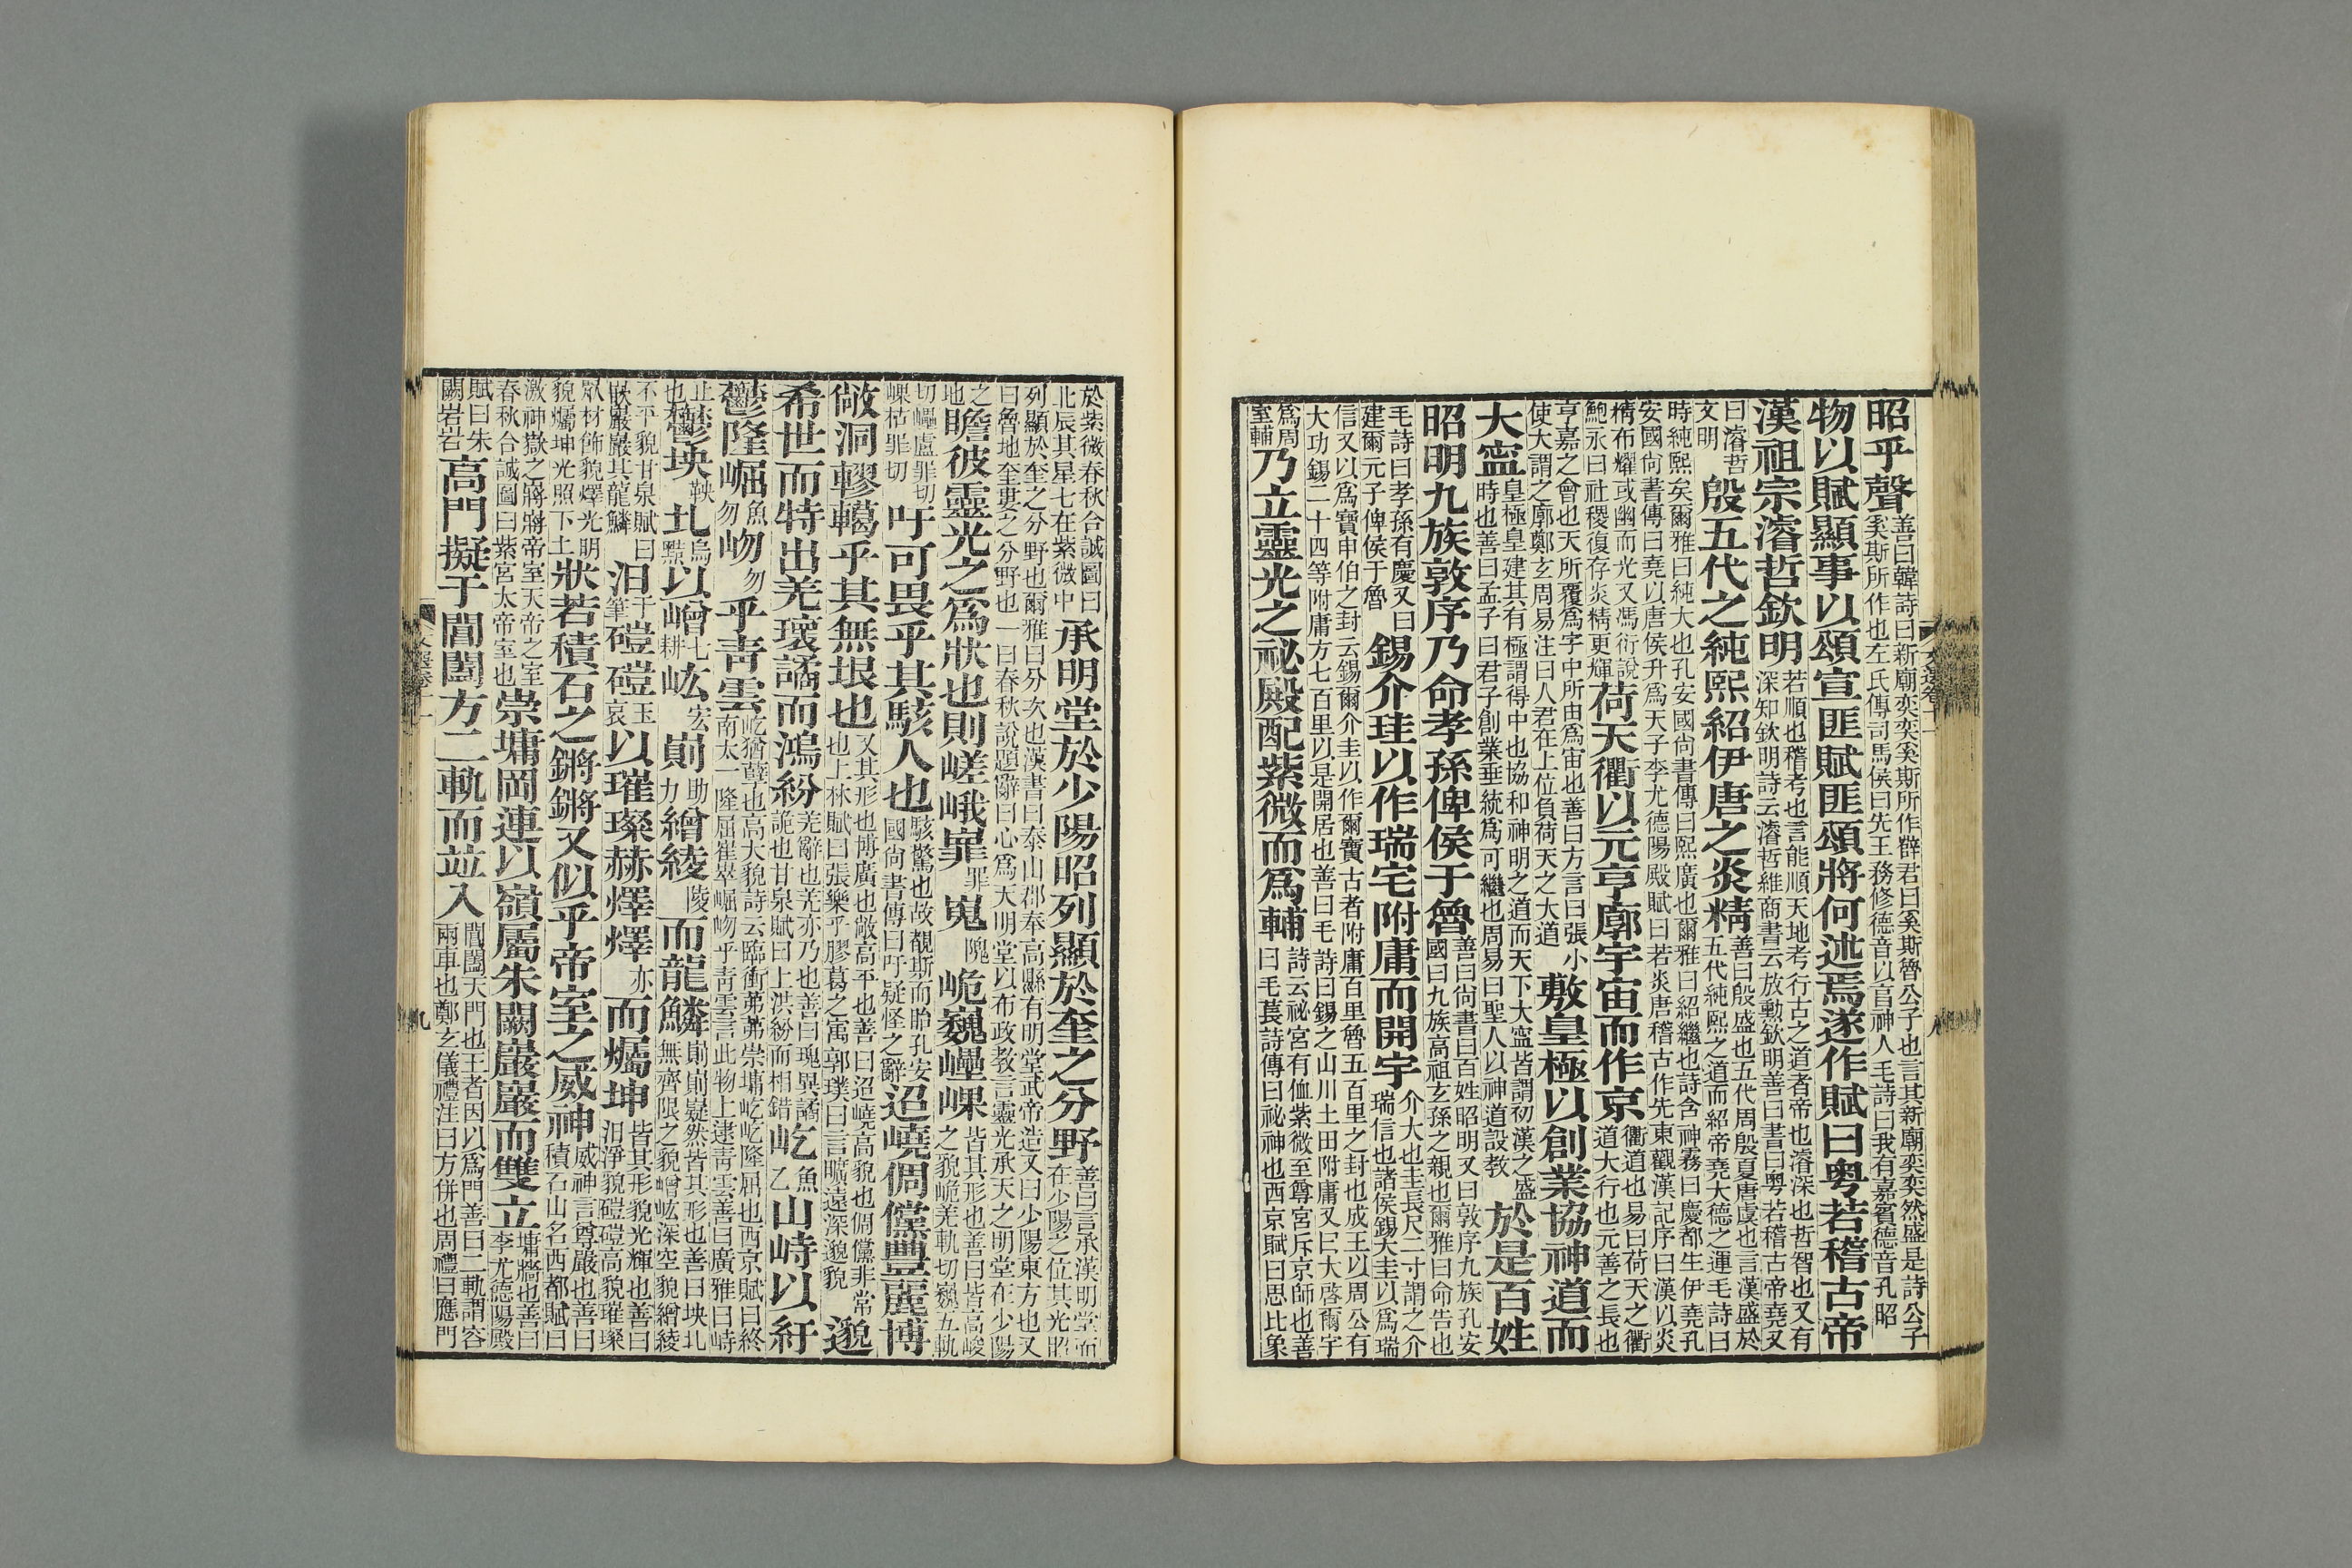 昭乎聲善曰韓詩曰新廟奕奕奚斯所作薛君曰奚斯魯公子也言其新廟奕奕然盛是詩公子奚斯所作也左氏傳司馬侯曰先王務修德音以亨神人毛詩曰我有嘉賓德音孔昭
物以賦顯事以頌宣匪賦匪頌將何述焉遂作賦曰粤若稽古帝
漢祖宗濬哲欽明若順也稽考也言能順天地考行古之道者帝也濬深也哲智也又有深知欽明詩云濬哲維商書云放勳欽明善曰書曰粤若稽古帝堯又
曰濬哲文明殷五代之純熙紹伊唐之炎精善曰殷盛也五代周殷夏唐虞也言漢盛於五代純熙之道而紹帝堯大德之運毛詩曰
時純熙矣爾雅曰純大也孔安國尚書傳曰熙廣也爾雅曰紹繼也詩含神霧曰慶都生伊堯孔安國尚書傳曰堯以唐侯升爲天子李尤德陽殿賦曰若炎唐稽古作先東觀漢記序曰漢以炎
精布耀或幽而光又馮衍說鮑永曰社稷復存炎精更輝荷天衢以元亨廓宇宙而作京衢道也易曰荷天之衢道大行也元善之長也
亨嘉之會也天所覆爲宇中所由爲宙也善曰方言曰張小使大謂之廓鄭玄周易注曰人君在上位負荷天之大道敷皇極以創業協神道而
大寧皇極皇建其有極謂得中也協和神明之道而天下大寧皆謂初漢之盛時也善曰孟子曰君子創業垂統爲可繼也周易曰聖人以神道設教於是百姓
昭明九族敦序乃命孝孫俾侯于魯善曰尚書曰百姓昭明又曰敦序九族孔安國曰九族高祖玄孫之親也爾雅曰命告也
毛詩曰孝孫有慶又曰建爾元子俾侯于魯錫介珪以作瑞宅附庸而開宇介大也圭長尺二寸謂之介瑞信也諸侯錫大圭以爲瑞
信又以爲寶申伯之封云錫爾介圭以作爾寶古者附庸百里魯五百里之封也成王以周公有大功錫二十四等附庸方七百里以是開居也善曰毛詩曰錫之山川土田附庸又曰大啓爾宇
爲周室輔乃立靈光之祕殿配紫微而爲輔詩云祕宮有侐紫微至尊宮斥京師也善曰毛萇詩傳曰祕神也西京賦曰思比象
於紫微春秋合誠圖曰北辰其星七在紫微中承明堂於少陽昭列顯於奎之分野善曰言承漢明堂而在少陽之位其光昭
列顯於奎之分野也爾雅曰分次也漢書曰泰山郡奉高縣有明堂武帝造又曰少陽東方也又曰魯地奎婁之分野也一曰春秋說題辭曰心爲天明堂以布政教言靈光承天之明堂在少陽
之地瞻彼靈光之爲狀也則嵯峨㠑罪嵬隗峗巍㠥嵲皆其形也善曰皆高峻之貌峗羌軌切巍五軌
切㠥盧罪切嵲枯罪切吁可畏乎其駭人也駭驚也故覩斯而眙孔安國尚書傳曰吁疑怪之辭迢嶢倜儻豐麗博
敞洞轇轕乎其無垠也又其形也博廣也敞高平也善曰迢嶢高貌也倜儻非常也上林賦曰張樂乎膠葛之㝢郭璞曰言曠遠深邈貌邈
希世而特出羌瓌譎而鴻紛羌辭也羌亦乃也善曰瑰異譎詭也甘泉賦曰上洪紛而相錯屹魚乙山峙以紆
鬱隆崛魚勿岉勿乎青雲屹猶孽也高大貌詩云臨衝茀茀崇墉屹屹隆屈也西京賦曰終南太一隆屈崔崒崛岉乎青雲言此物上逮青雲善曰廣雅曰峙
止也鬱坱鞅圠烏黠以嶒七耕㟅宏崱助力繒綾陵而龍鱗崱崱嶷然皆其形也善曰坱圠無齊限之貌嶒㟅深空貌繒綾
不平貌甘泉賦曰嶔巖巖其龍鱗汩于筆磑磑玉哀以璀璨赫燡燡亦而爥坤皆其形貌光輝也善曰汩淨貌磑磑高貌璀璨
眾材飾貌燡光明貌爥坤光照下土狀若積石之鏘鏘又似乎帝室之威神威神言尊嚴也善曰積石山名西都賦曰
激神嶽之將將帝室天帝之室春秋合誠圖曰紫宮太帝室也崇墉岡連以嶺屬朱闕巖巖而雙立墉牆也善曰李尤德陽殿
賦曰朱闕岩岩高門擬于閶闔方二軌而並入閶闔天門也王者因以爲門善曰二軌謂容兩車也鄭玄儀禮注曰方併也周禮曰應門
八
九